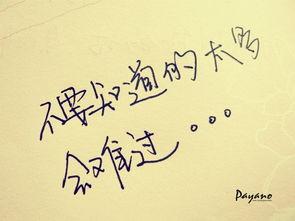 不要知道的太多
会难过。。。
Payano